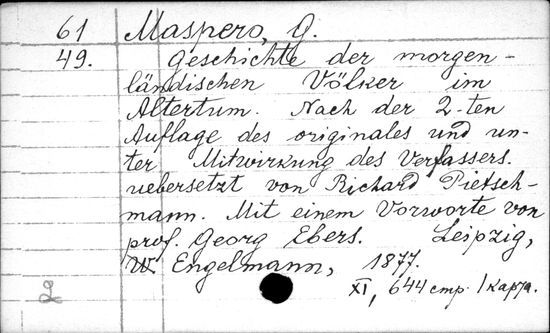 61 Maspero, G.
49. Geschichte der morgen-
ländischen Völker im
Altertum. Nach der 2-ten
Auflage des originales und un-
ter Mitwirkung des Verfassers.
uebersetzt von Richard Pietsch-
mann. Mit einem Vorworte von
prof. Georg Ebers. Leipzig,
W. Engelmann, 1877.
XI, 644 стр. 1 карта.